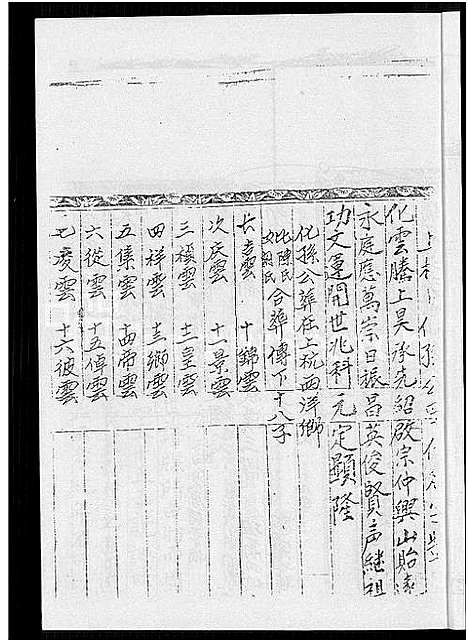 化雲騰上昊承先紹啟宗仲興山貽遠
永庭應萬崇日振昌英俊賢声継祖
功文運開世兆科元定顯隆
化孫公葬在上杭西洋鄉
妣陳氏
合葬傳下十八子
長 雲 十錦雲
次慶雲 十一景雲
三福雲 十二皇雲
四祥雲 十三鄉雲
五集雲 十四帝雲
六從雲 十五倬雲
七慶雲 十六彼雲